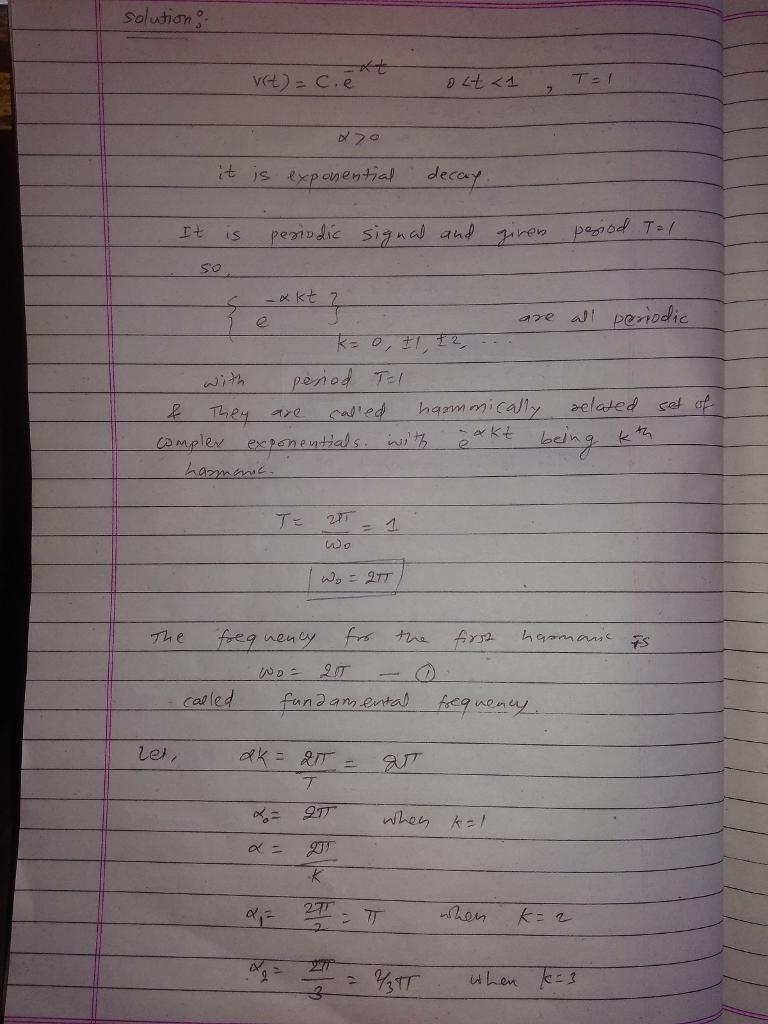 solution:
v(t) = C.e^-αt   0<t<1 , T=1
α>0
it is exponential decay.
It is periodic signal and given period T=1
so,
{ e^-αkt } are all periodic
k= 0, ±1, ±2, ...
with period T=1
& They are called harmmically related set of
complex exponentials. with e^-αkt being kth
harmonic.
T= 2π/ω0 = 1
ω0 = 2π
The frequency for the first harmonic is
ω0 = 2π — ①
called fundamental frequency.
Let, αk = 2π/T = 2π
α0= 2π when k=1
α = 2π/k
α1= 2π/2 = π when k=2
α2= 2π/3 = 2/3π when k=3